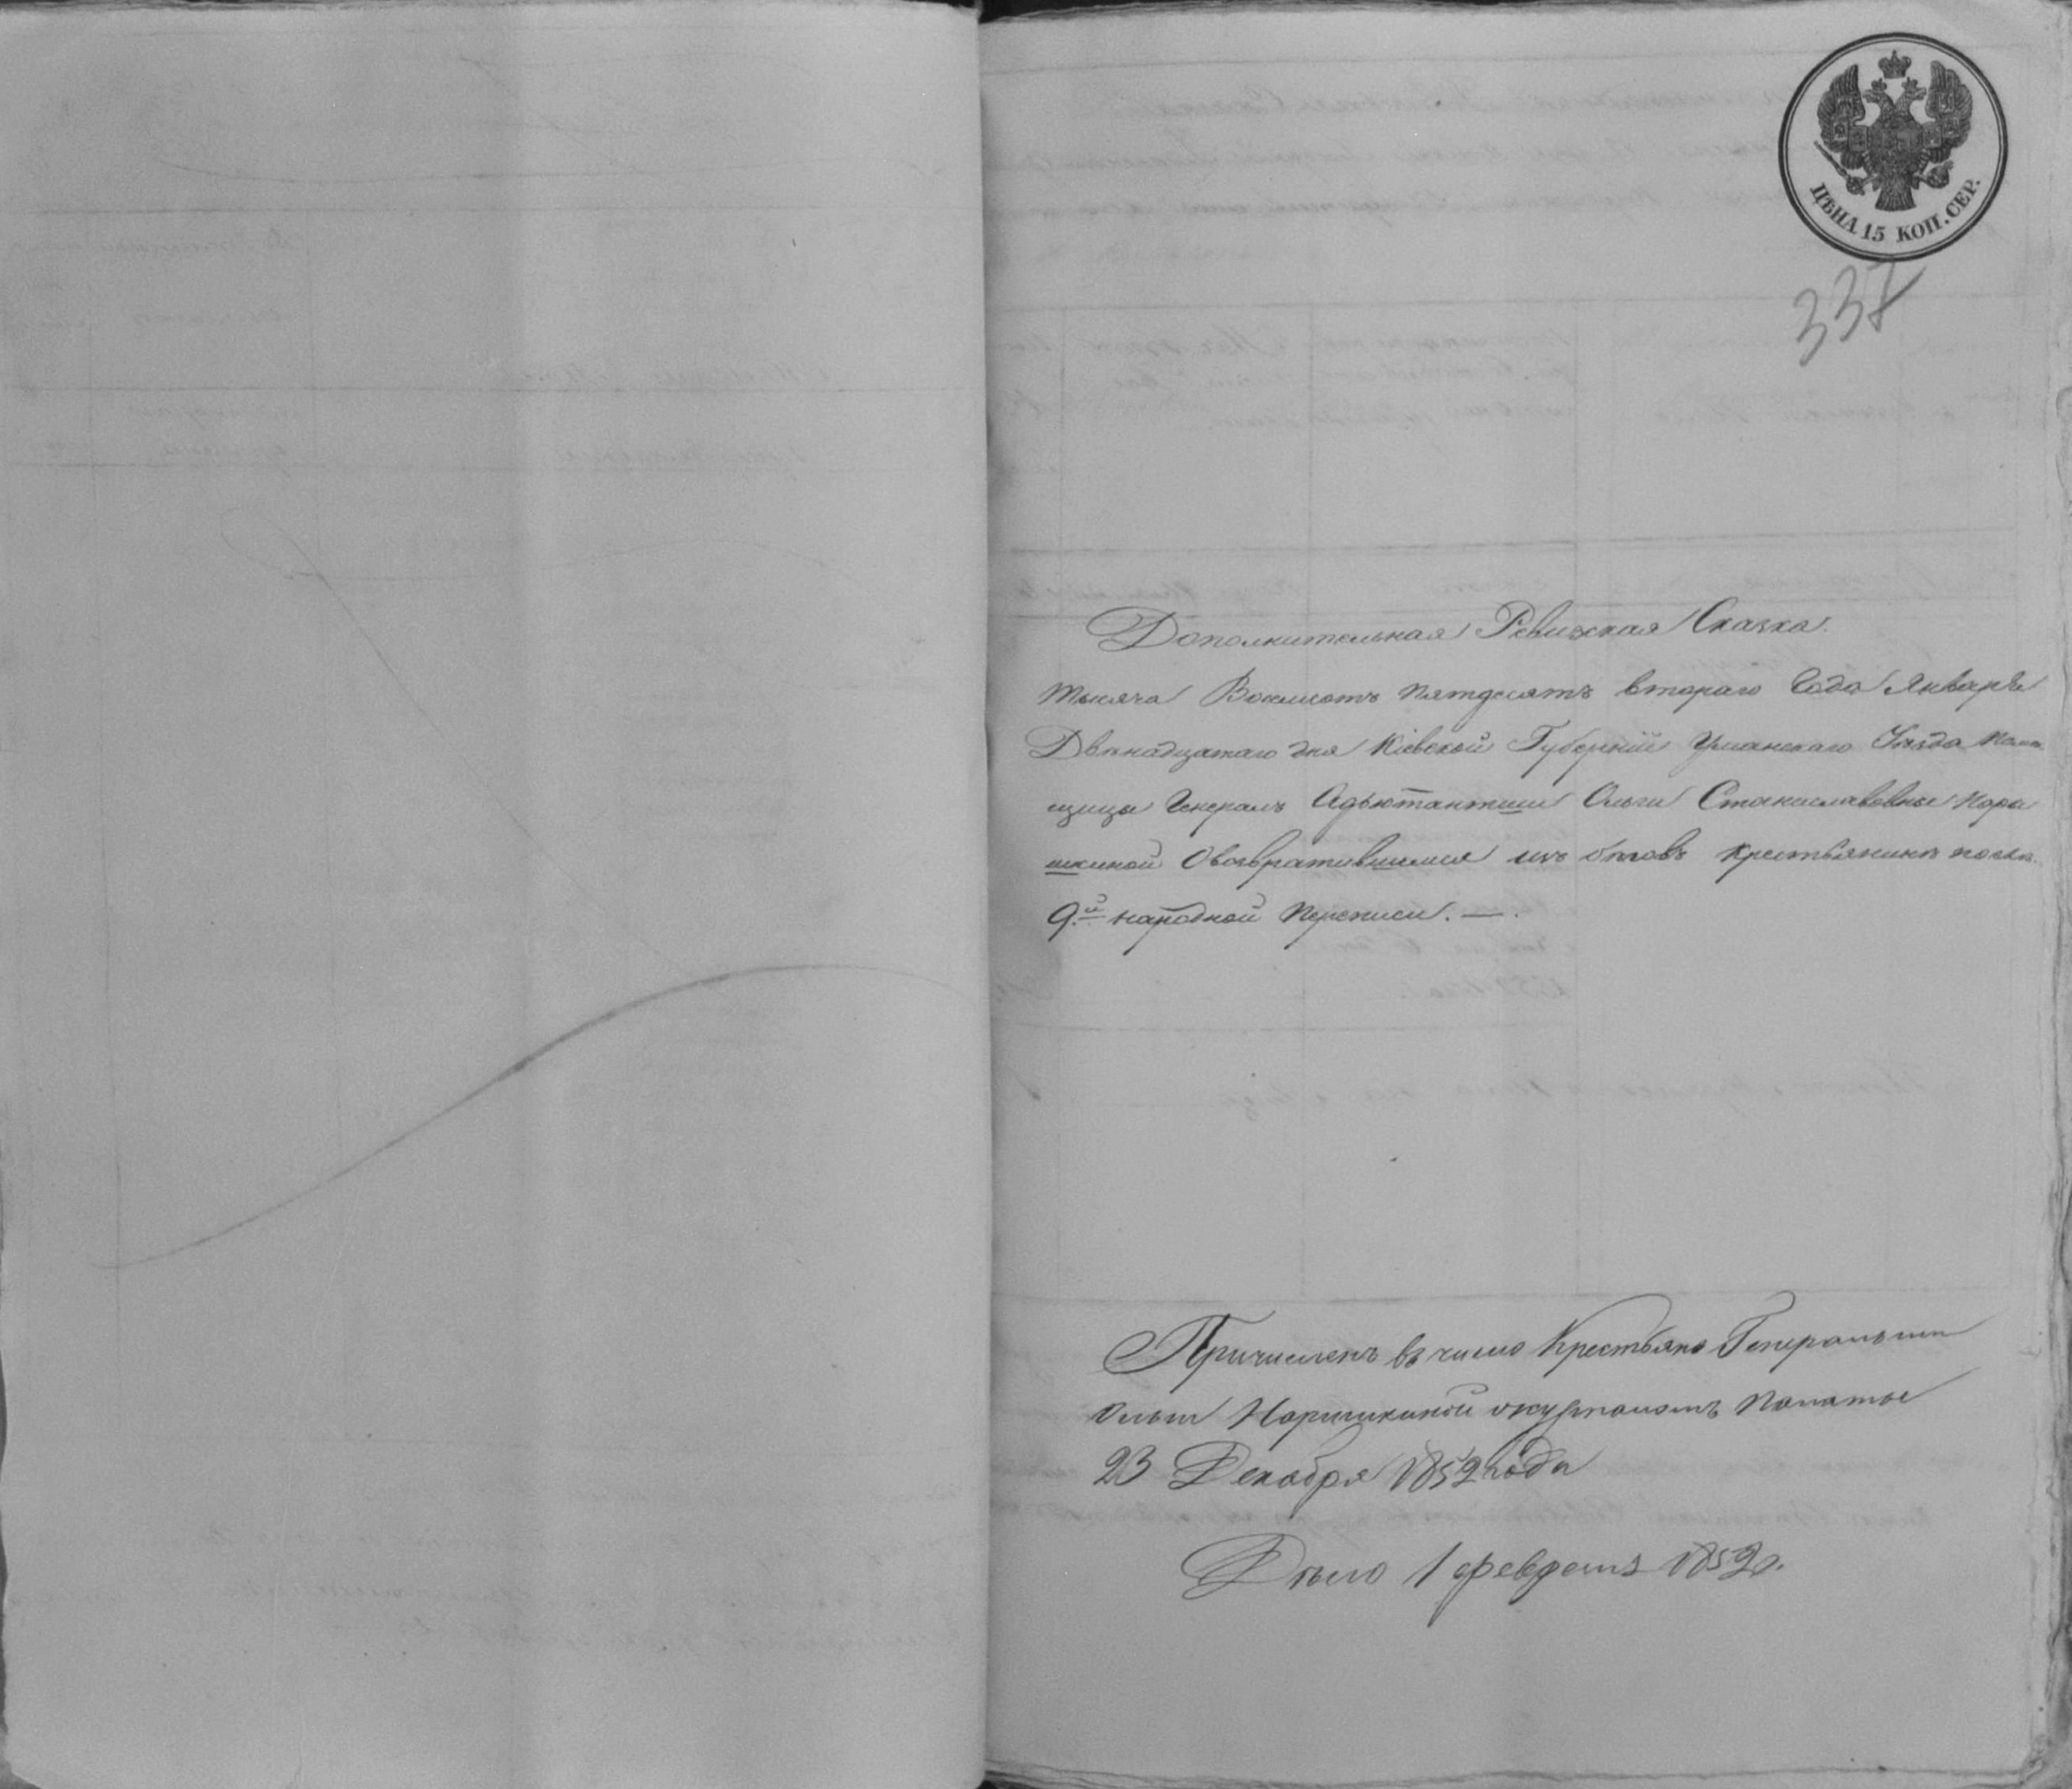 ЦѢНА 15 КОП. СЕР.
337
Дополнительная Ревижская Сказка.
Тысяча Восемсотъ пятдесятъ втораго Года Январѣ
Двѣнадцатаго дня Кіевской Губерніи Уманскаго Уѣзда поме
щицы Генералъ Адьютантши Ольги Станиславовны Нары
шкиной Овозвратившемся изъ бѣговъ крестьянинѣ послѣ
9.й народной переписи. —.
Причисленъ въ число Крестьянъ Генеральши
Ольги Наришкиной журналомъ Палаты
23 Декабря 1852 года
Дѣло 1 февраля 1852 г.